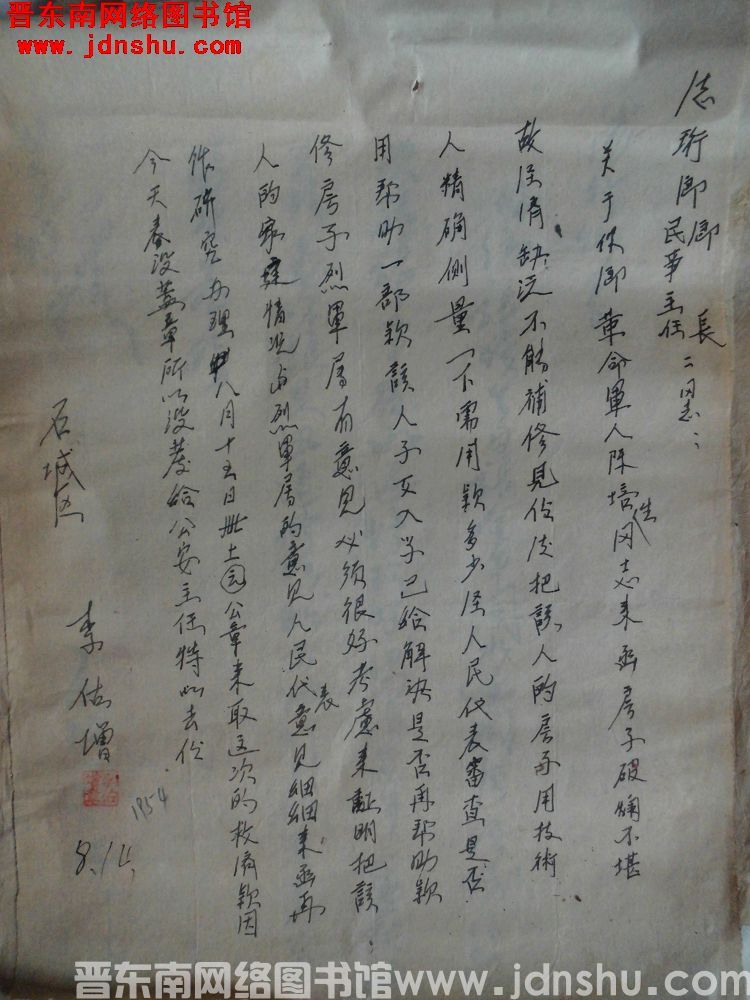 晋东南网络图书馆
www.jdnshu.com
志珩乡乡长
民事主任二同志：
关于你乡革命军人陈培浩同志来函房子破烂不堪
故经济缺泛不能补修见信后把该人的房子用技術
人精确侧量一下需用款多少经人民代表審查是否
用帮助一部款該人子女入学已给解决是否再帮助款
修房子烈軍属有意见必须很好考慮来証明把該
人的家庭情况与烈軍属的意见人民代表意见细细来函再
作研究办理
八月十五日
公章来取这次的救济款因
今天春没蓋章所以没發给公安主任特此去信
石城区
李佑增
1954
8.14.
晋东南网络图书馆www.jdnshu.com